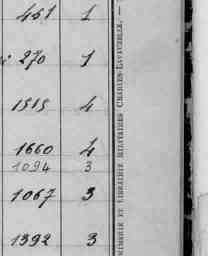 451 1
270 1
1515 4
1660 4
1094 3
1067 3
1392 3
IMPRIMERIE ET LIBRAIRIE MILITAIRES CHARLES-LAVAUZELLE. —